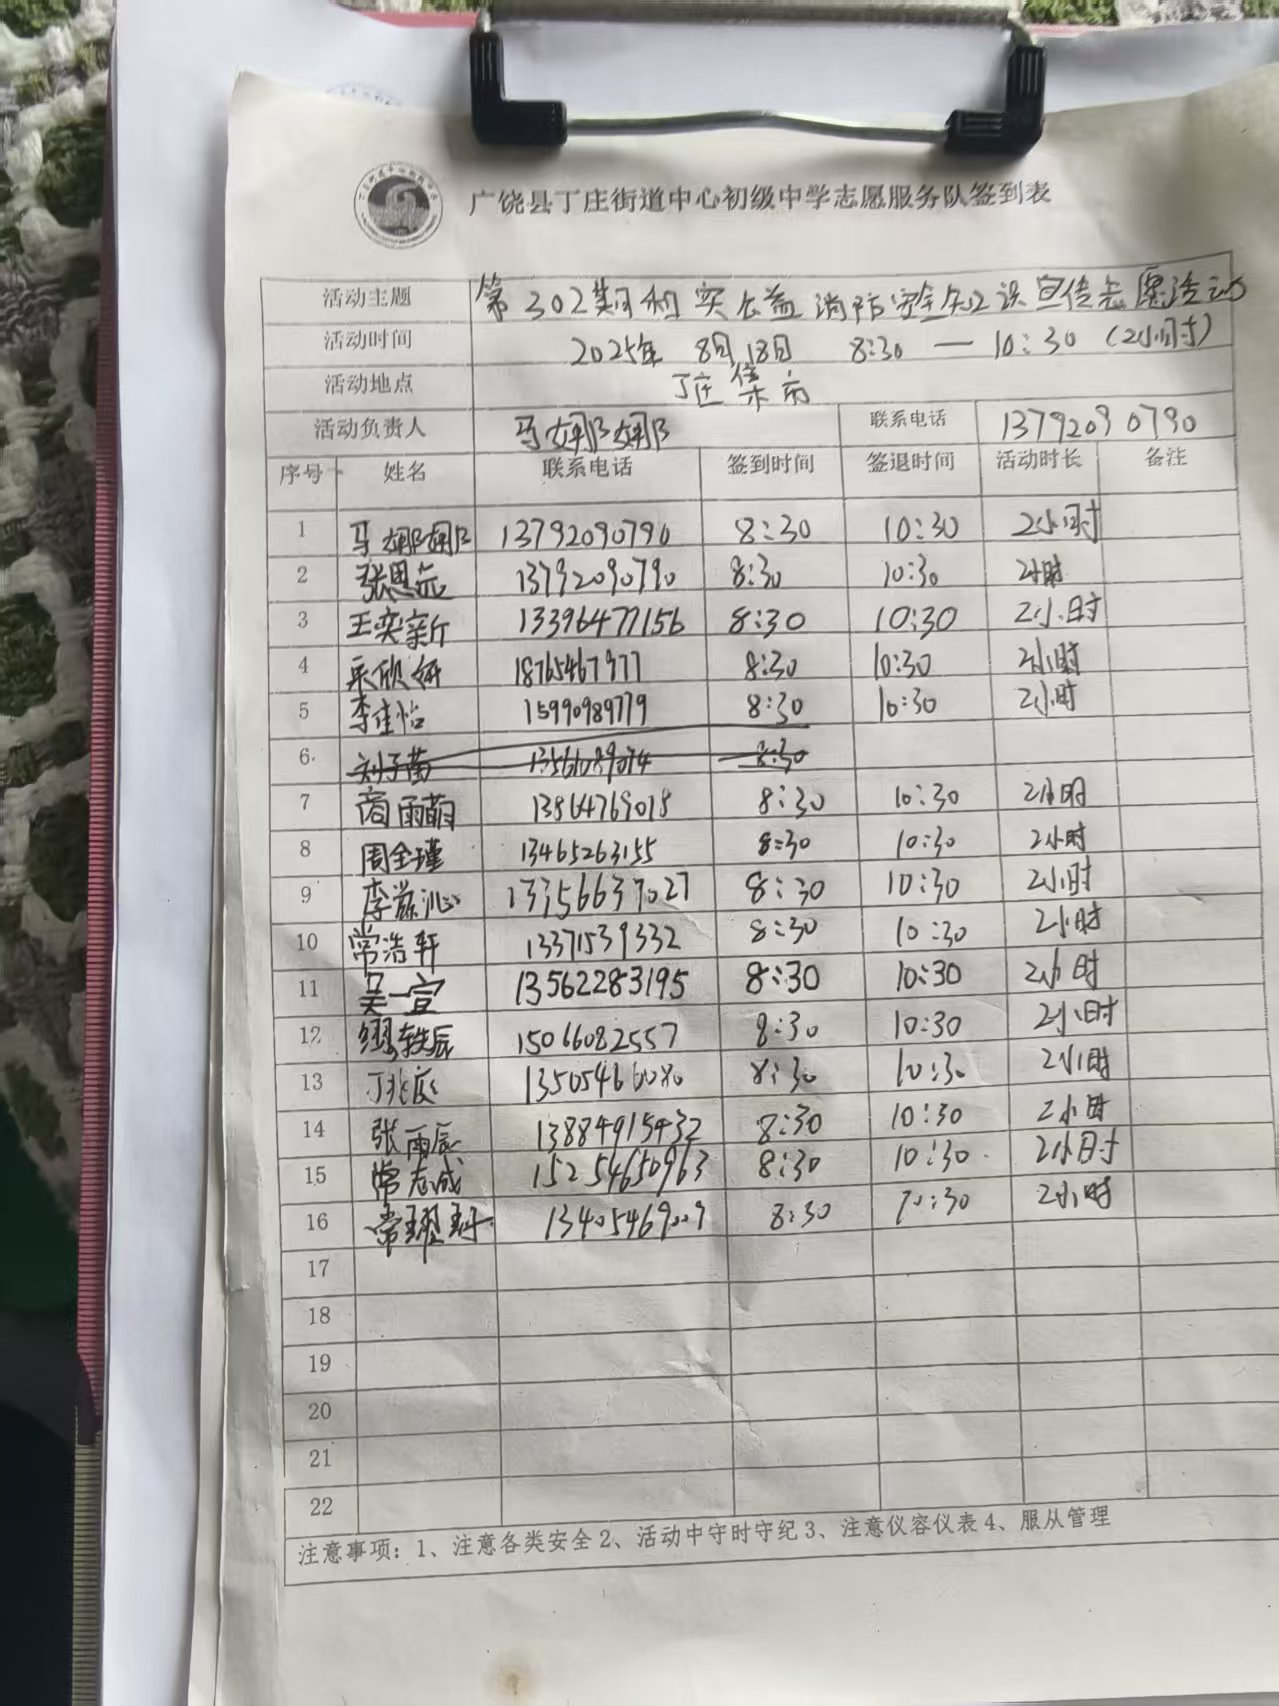 广饶县丁庄街道中心初级中学志愿服务队签到表
活动主题 第302期利实公益消防安全知识宣传志愿活动
活动时间 2025年 8月18日 8:30 — 10:30 (2小时)
活动地点 丁庄集市
活动负责人 马娜娜 联系电话 13792090790
序号 姓名 联系电话 签到时间 签退时间 活动时长 备注
1 马娜娜 13792090790 8:30 10:30 2小时
2 张恩 13792090790 8:30 10:30 2小时
3 王奕新 13396477156 8:30 10:30 2小时
4 欣妍 18765467977 8:30 10:30 2小时
5 李佳怡 15990989779 8:30 10:30 2小时
6 刘子菡 8:30
7 商雨萌 13864769018 8:30 10:30 2小时
8 周金瑾 13465263155 8:30 10:30 2小时
9 李滋沁 13356637027 8:30 10:30 2小时
10 常浩轩 13371539332 8:30 10:30 2小时
11 吴一宣 13562283195 8:30 10:30 2小时
12 缪轶辰 15066082557 8:30 10:30 2小时
13 丁兆庆 13505466080 8:30 10:30 2小时
14 张雨辰 13884915432 8:30 10:30 2小时
15 常志成 15254650963 8:30 10:30 2小时
16 常耀 13405469009 8:30 10:30 2小时
17
18
19
20
21
22
注意事项：1、注意各类安全2、活动中守时守纪3、注意仪容仪表4、服从管理